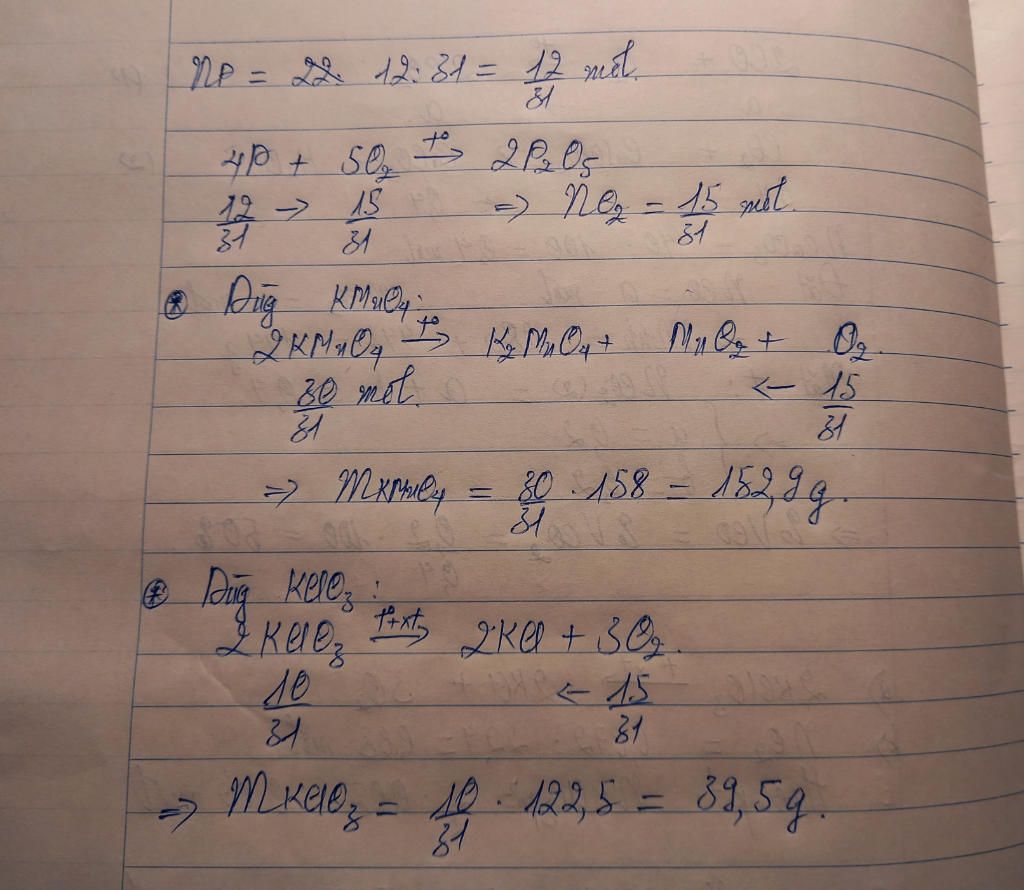 nP = 22. 12:31 = 12/31 mol.
4P + 5O₂ t°→ 2P₂O₅
12/31 → 15/31 => nO₂ = 15/31 mol.
* Dùg KMnO₄:
2KMnO₄ t°→ K₂MnO₄ + MnO₂ + O₂.
30/31 mol. ← 15/31
=> mKMnO₄ = 30/31 . 158 = 152,9g.
* Dùg KClO₃:
2KClO₃ t°+xt→ 2KCl + 3O₂.
10/31 ← 15/31
=> mKClO₃ = 10/31 . 122,5 = 39,5g.